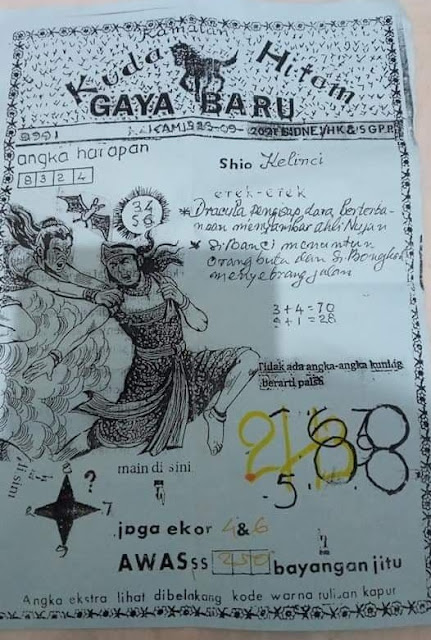 Ramalan
Kuda Hitam
GAYA BARU
KAMIS 23-09-2021 SIDNEY/HK & SGP.P
angka harapan
8 3 2 4
Shio Kelinci
34
56
erek-erek
* Dracula pengisap dara Berterba-
ngan menyambar
* SiBanci menuntun
orang buta dan
menyebrang jalan
3+4=70
9+1=28
Tidak ada angka-angka kuning
Berarti palsu
di sini
main di sini
?
7
9
5
jaga ekor 4&6
AWASss 250 bayangan jitu
Angka ekstra lihat dibelakang kode warna tulisan kapur